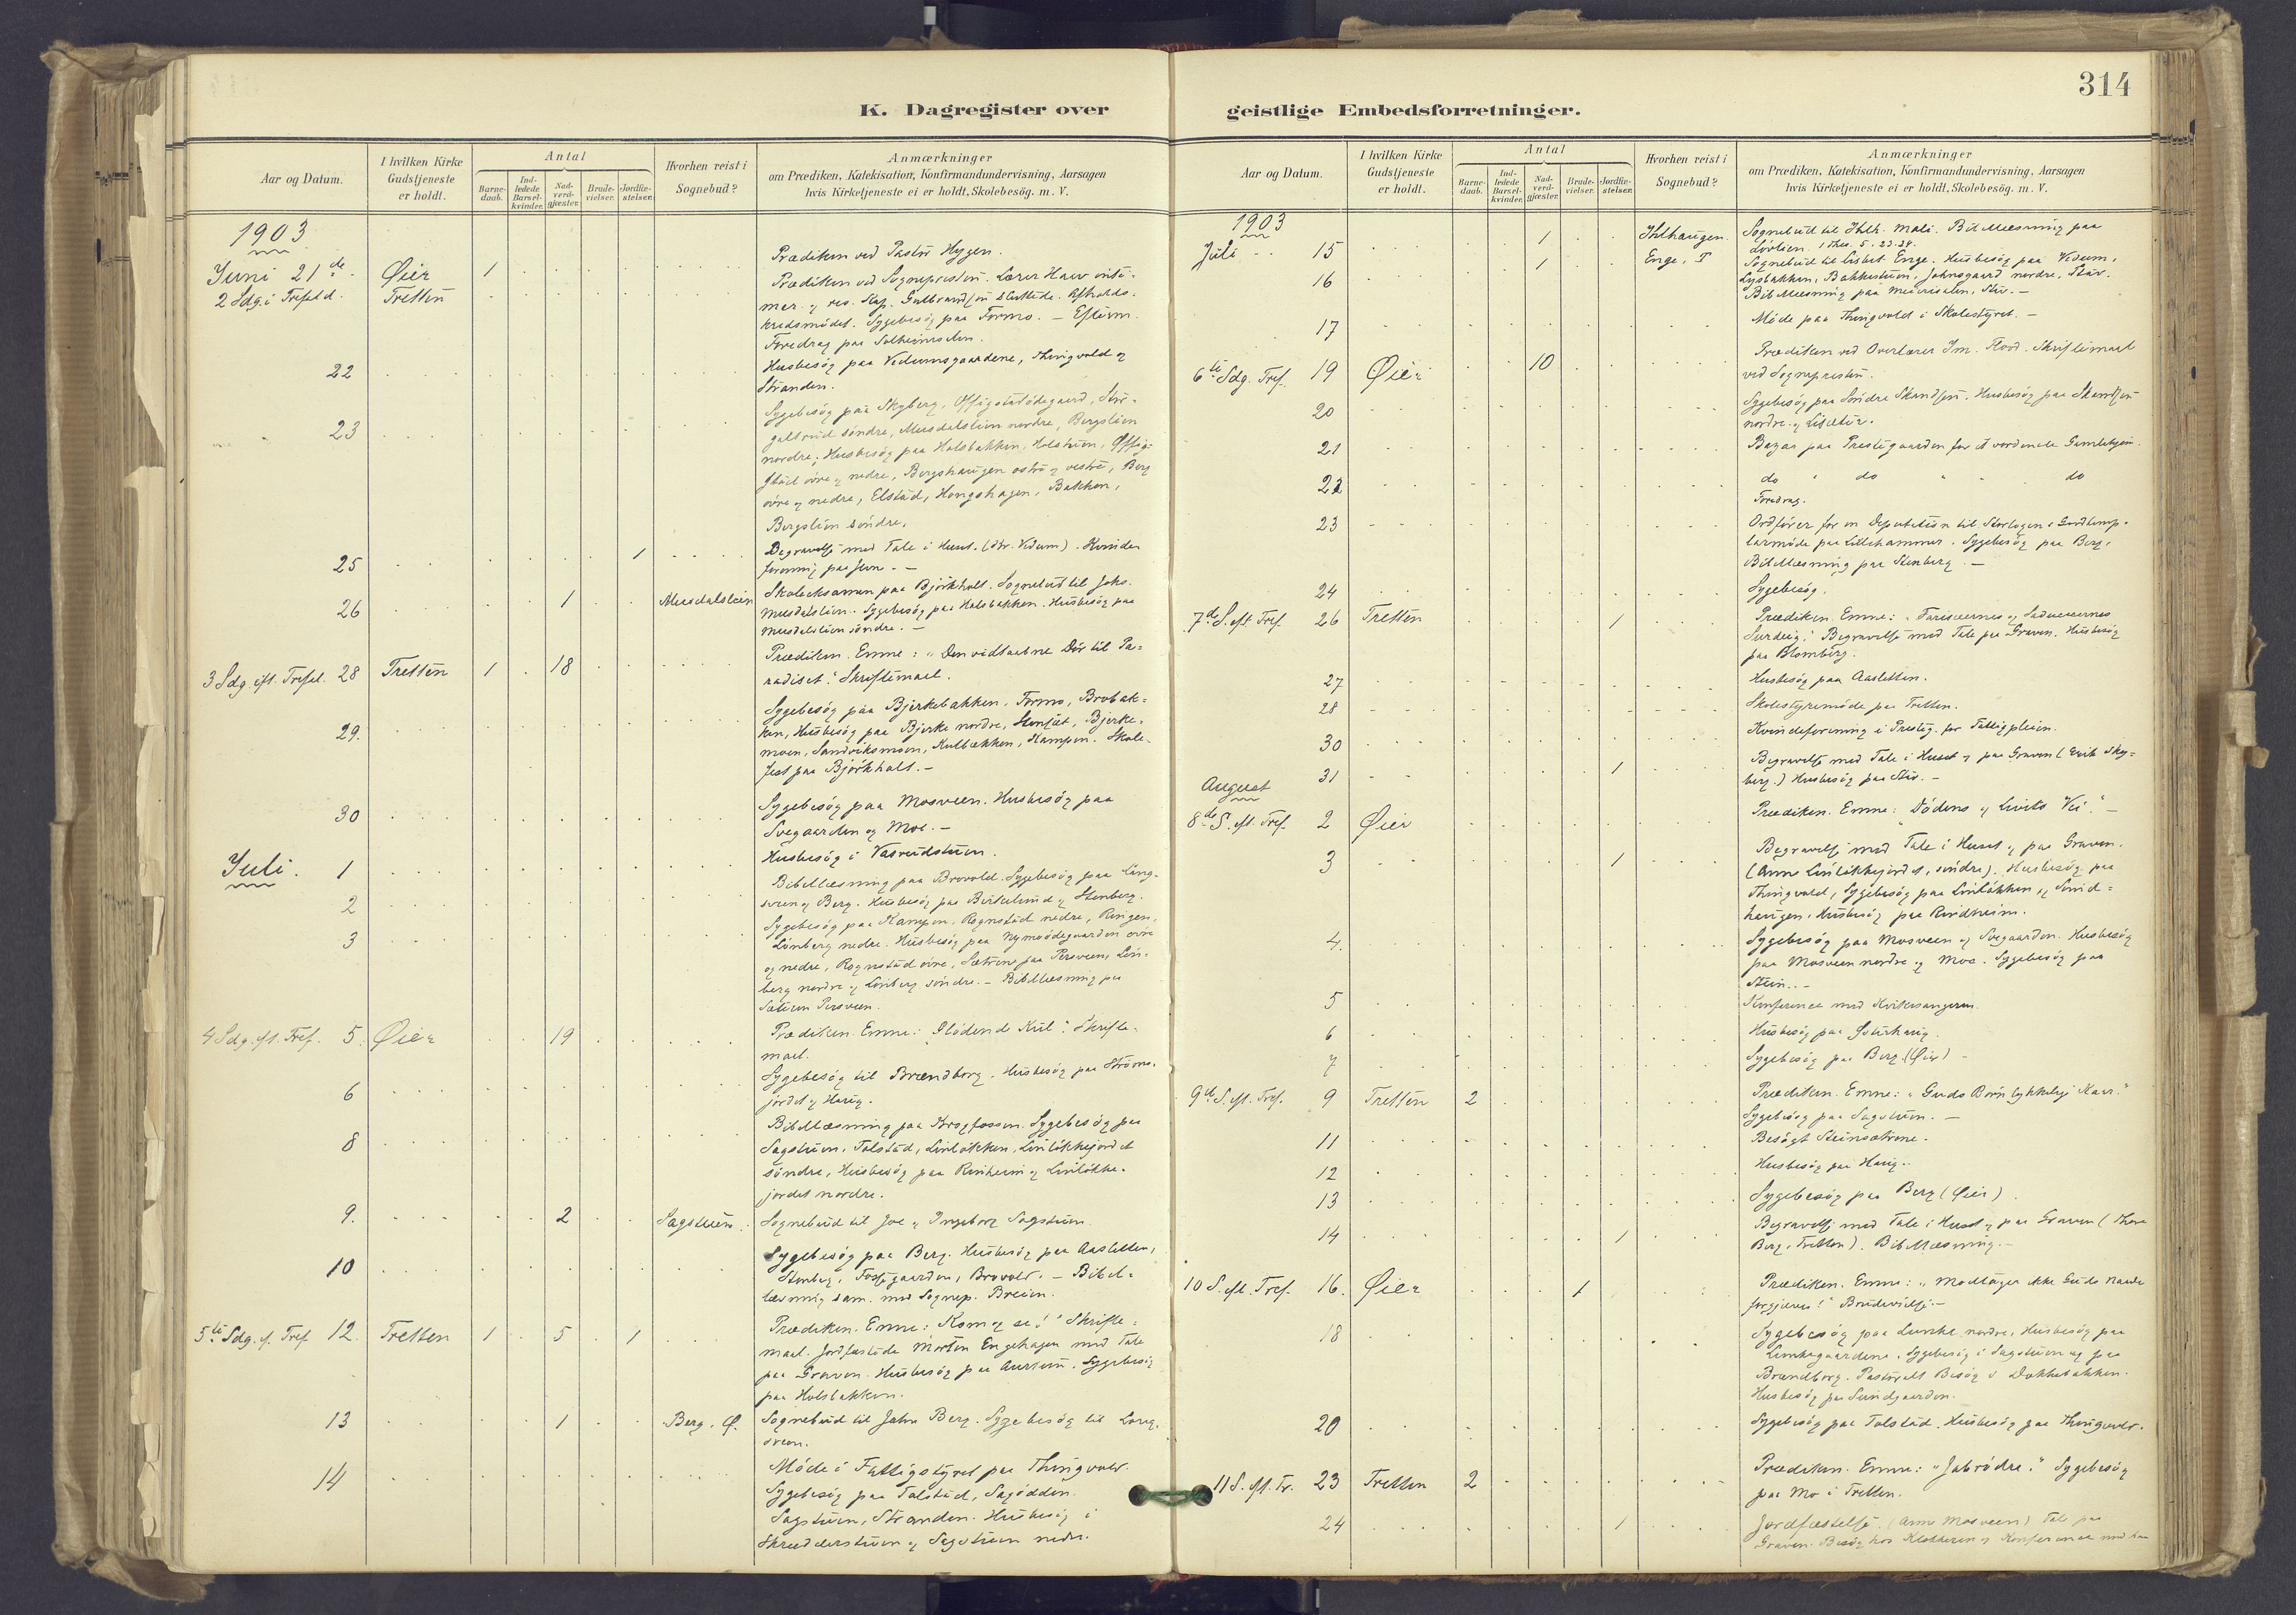 314
K. Dagregister over
Aar og Datum.
I hvilken Kirke
Gudstjeneste
er holdt.
Antal
Barne-
daab.
Ind-
ledede
Barsel-
kvinder.
Nad-
verd-
gjæster.
Brude-
vielser.
Jordfæ-
stelser.
Hvorhen reist i
Sognebud?
Anmærkninger
om Prædiken, Katekisation, Konfirmandundervisning, Aarsagen
hvis Kirketjeneste ei er holdt, Skolebesög. m. V.
1903
Juni 21de Øier 1 Prædiken ved Pastor Hygen.
2 Sdg. i Trefold. Tretten Prædiken ved Sognepresten. Lærer
Kredsmödet. Sygebesög paa Formo. – Efterm.
Foredrag paa
22 Husbesög paa Vedumsgaardene, Thingvold og
Stranden.
23 Sygebesög paa Skyberg,
søndre, Musdalslien nordre, Bergslien
nordre; Husbesög paa Holsbakken, Holstuen,
øvre og nedre, Bergshaugen østre og vestre, Berg
øvre og nedre, Elstad, Hongshagen, Bakken,
Bergslien søndre.
25 1 Begravelse med Tale i Huset.
26 1 Musdalslien Skoleeksamen paa Björkholt. Sognebud til Johs.
Musdalslien. Sygebesög paa Holsbakken. Husbesög paa
Musdalslien söndre. –
3 Sdg. eft. Trefol. 28 Tretten 1 18 Prædiken. Emne: "Den vidtaabne Dör til Pa=
radiset." Skriftemaal.
29. Sygebesög paa Bjerkebakken, Formo, Brobak=
ken, Husbesög paa Bjerke nordre, Bjerke-
moen, Sandviksmoen, Kulbækken, Kampen. Skole-
fest paa Björkholt. –
30 Sygebesög paa Mosveen. Husbesög paa
Svegaarden og Moe. –
Juli. 1 Husbesög i Vasrudstuen.
2 Bibellæsning paa Brovold. Sygebesög paa
og Berg. Husbesög paa Birkelund og Stenberg.
3 Sygebesög paa Kampen, Rognstad nedre, Ringen,
Lönberg nedre. Husbesög paa
og nedre, Rognstad øvre,
– Bibellæsning paa
4 Sdg. eft. Tref. 5. Øier 19 Prædiken. Emne: Glödende Kul". Skrifte-
maal.
6 Sygebesög til Brændborg. Husbesög paa Ströms-
jordet og Haug.
8 Bibellæsning paa Krogfossen. Sygebesög paa
Sagstuen, Tolstad, Linlökken, Linlökkejordet
söndre, Husbesög paa Rinheim og Linlökke-
jordet nordre.
9. 2 Sagstuen. Sognebud til Joe og Ingeborg Sagstuen.
10 Sygebesög paa Berg. Husbesög paa Aasletten,
Stenberg, Brovold. – Bibel=
læsning sam. med Sognep. Breien.
5te Sdg. e. Tref 12. Tretten 1 5 1 Prædiken. Emne: Kom og se!" Skrifte=
maal. Jordfæstede Morten Engehagen med Tale
paa Graven. Husbesög paa Sygebesög
paa Holsbakken.
13 1 Berg. Ø. Sognebud til John Berg. Sygebesög til
14 Möde i Fattigstyret paa Thingvold.
Sygebesög paa Tolstad, Sagödden.
Sagstuen, Stranden. Husbesög i
Skredderstuen og Sagstuen nedre.
geistlige Embedsforretninger.
Aar og Datum.
I hvilken Kirke
Gudstjeneste
er holdt.
Antal
Barne-
daab.
Ind-
ledede
Barsel-
kvinder.
Nad-
verd-
gjæster.
Brude-
vielser.
Jordfæ-
stelser.
Hvorhen reist i
Sognebud?
Anmærkninger
om Prædiken, Katekisation, Konfirmandundervisning, Aarsagen
hvis Kirketjeneste ei er holdt, Skolebesög. m. V.
1903
Juli 15 1 Ihlhaugen. Sognebud til Bibellæsning paa
1 Thes. 5. 23-24.
16 1 Enge, T Sognebud til Lisbet Enge. Husbesög paa Vedum,
Lysbakken, Bakkestuen, Johnsgaard nordre, Stav.
Bibellæsning paa Meierisalen, Stav. –
17 Möde paa Thingvold i Skolestyret. –
6te Sdg. Tref. 19 Øier 10 Prædiken ved Overlærer Skriftemaal
ved Sognepresten.
20 Sygebesög paa Söndre Skandsen. Husbesög paa Skandsen
nordre og
21 Bazar paa Prestegaarden for et vordende Gamlehjem.
22 do do do
Foredrag.
23 Ordförer for en Deputation til Storlogens Goodtemp-
larmöde paa Lillehammer. Sygebesög paa Berg.
Bibellæsning paa Stenberg. –
24 Sygebesög.
7de S. eft Tref. 26 Tretten 1 Prædiken. Emne: "Farisæernes og Sadukæernes
Surdeig." Begravelse med Tale paa Graven. Husbesög
paa Blomberg.
27 Husbesög paa Aasletten.
28 Skolestyremöde paa Tretten.
30 Kvindeforening i Presteg. for Fattigpleien.
31 1 Begravelse med Tale i Huset og paa Graven (Erik Sky=
berg.) Husbesög paa Stav. –
August
8de S. eft. Tref. 2 Øier Prædiken. Emne: "Dödens og Livets Vei." –
3 1 Begravelse med Tale i Huset og paa Graven.
(Anne Linlökkejordet, söndre). Husbesög paa
Thingvold, Sygebesög paa Linlökken,
haugen, Husbesög paa Rindheim.
4. Sygebesög paa Mosveen og Svegaarden. Husbesög
paa Mosveen nordre og Moe. Sygebesög paa
Stein. –
5 Konferense med Kirkesangeren.
6 Husbesög paa
7 Sygebesög paa Berg. (Øier) –
9de S. eft. Tref. 9 Tretten 2 Prædiken. Emne: "Guds Börns lykkelige Kaar."
Sygebesög paa Sagstuen. –
11 Besögt Steinsætrene.
12 Husbesög paa Haug.
13 Sygebesög paa Berg (Øier).
14 1 Begravelse med Tale i Huset og paa Graven (Thore
Berg, Tretten). Bibellæsning. –
10 S. eft. Tref. 16. Øier 1 Prædiken. Emne: "Modtager ikke Guds Naade
forgjæves!" Brudevielse. –
18 Sygebesög paa Lunke nordre, Husbesög paa
Lunkegaardene. Sygebesög i Sagstuen og paa
Brændborg. Pastoralt Besög i Dokkebakken.
Husbesög paa Sundgaarden.
20 Sygebesög paa Tolstad. Husbesög paa Thingvold.
11 S. eft. Tr. 23 Tretten 2 Prædiken. Emne: "Jabrödre." Sygebesög
paa Mo i Tretten.
24 1 Jordfæstelse. (Anne Mosveen) Tale paa
Graven. Besög hos Klokkeren og Konferense med ham